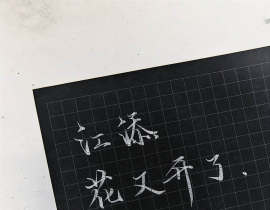 江添
花又开了.